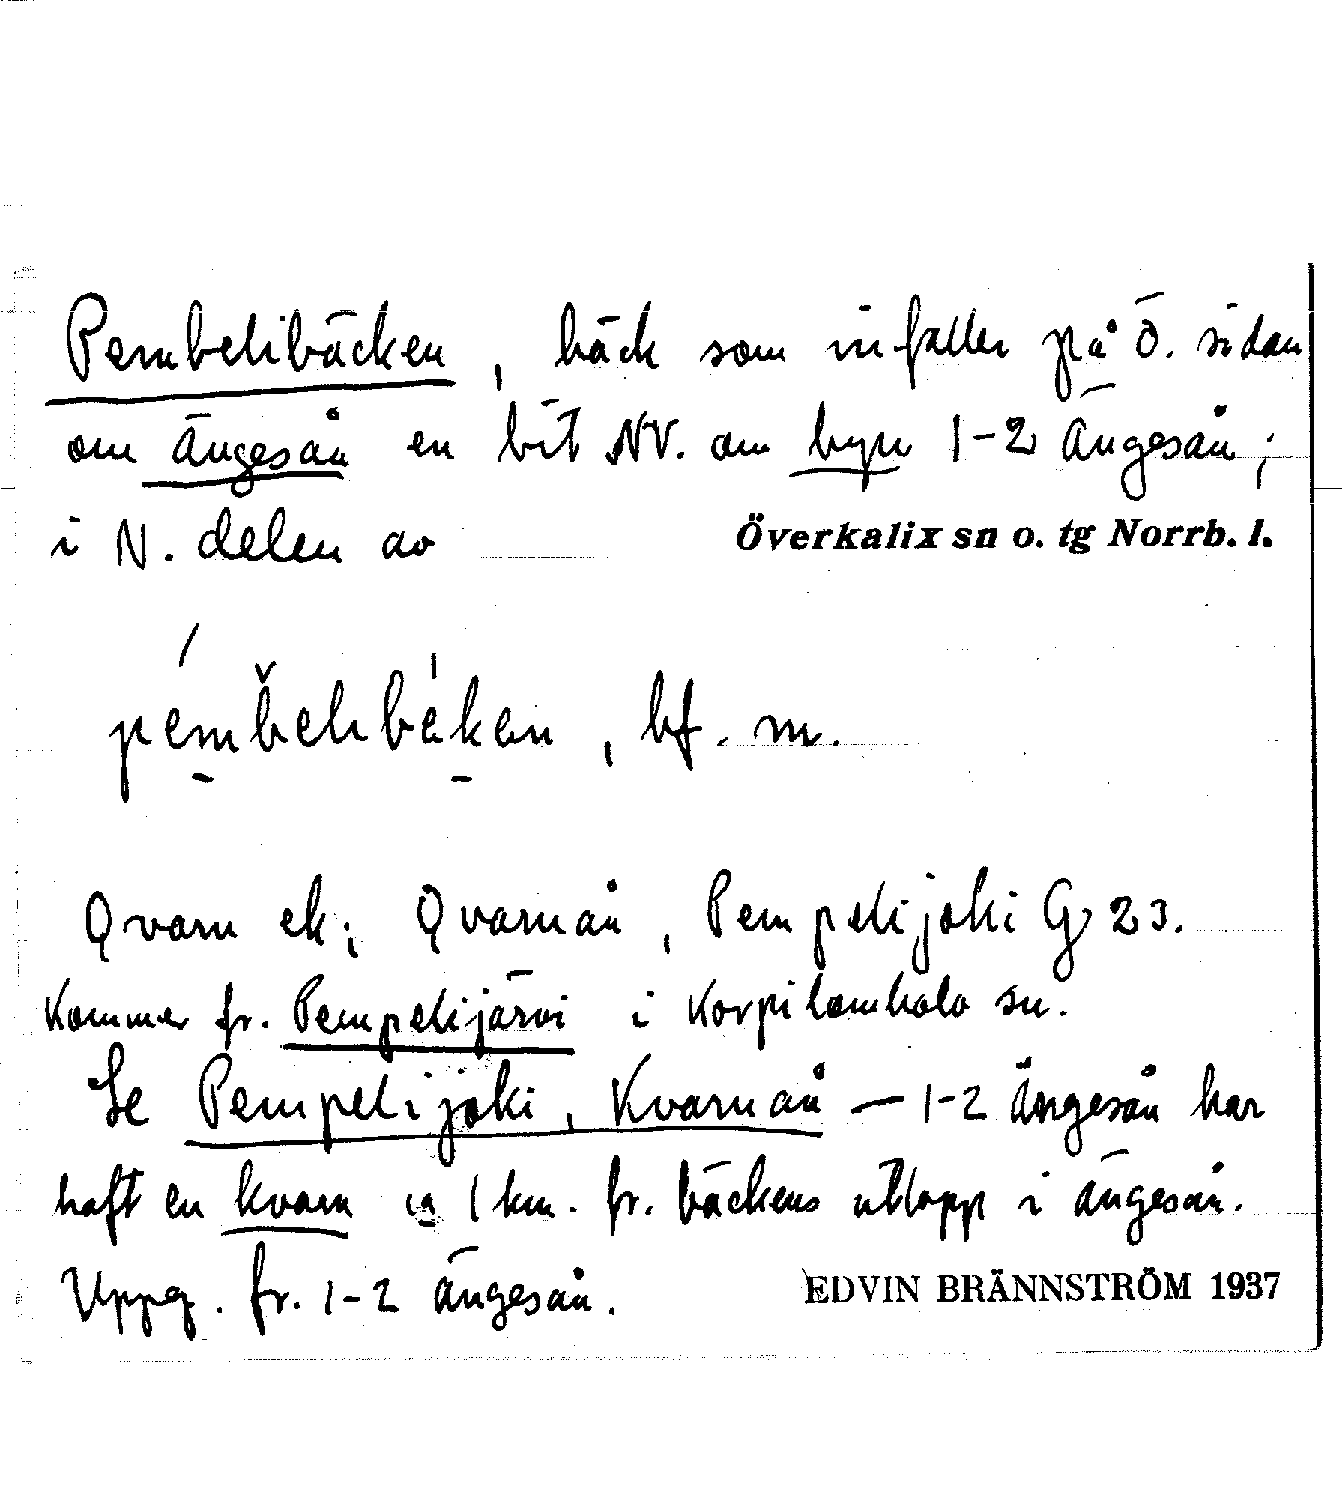 Pembelibäcken, bäck som infaller på ö. sidan
om ängesån en bit NV. om byn 1-2 ängesån;
i N. delen av Överkalix sn o. tg Norrb. l.
bf. m.
Qvarn ek; Qvarnån, Pempelijoki G 23.
Kommer fr. Pempelijärvi i Korpilombolo sn.
Se Pempelijoki, Kvarnån — 1-2 Ängesån har
haft en kvarn ca 1 km. fr. bäckens utlopp i ängesån.
Uppg. fr. 1-2 ängesån. EDVIN BRÄNNSTRÖM 1937